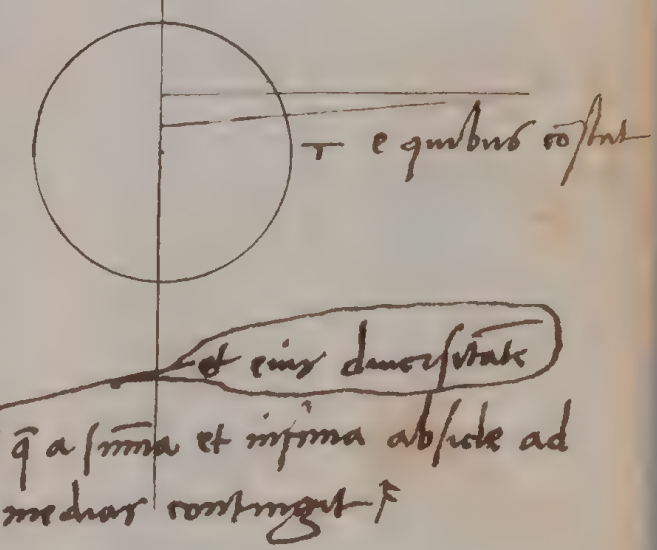 T e quibus cōstat
et eius diversitatē
q̄ a sūma et infima abside ad
medias contingit F